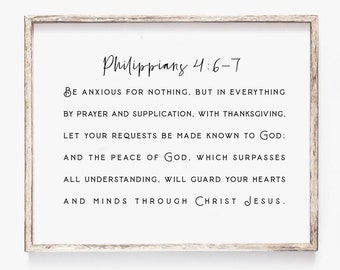 Philippians 4:6-7
Be anxious for nothing, but in everything
by prayer and supplication, with thanksgiving,
let your requests be made known to God;
and the peace of God, which surpasses
all understanding, will guard your hearts
and minds through Christ Jesus.